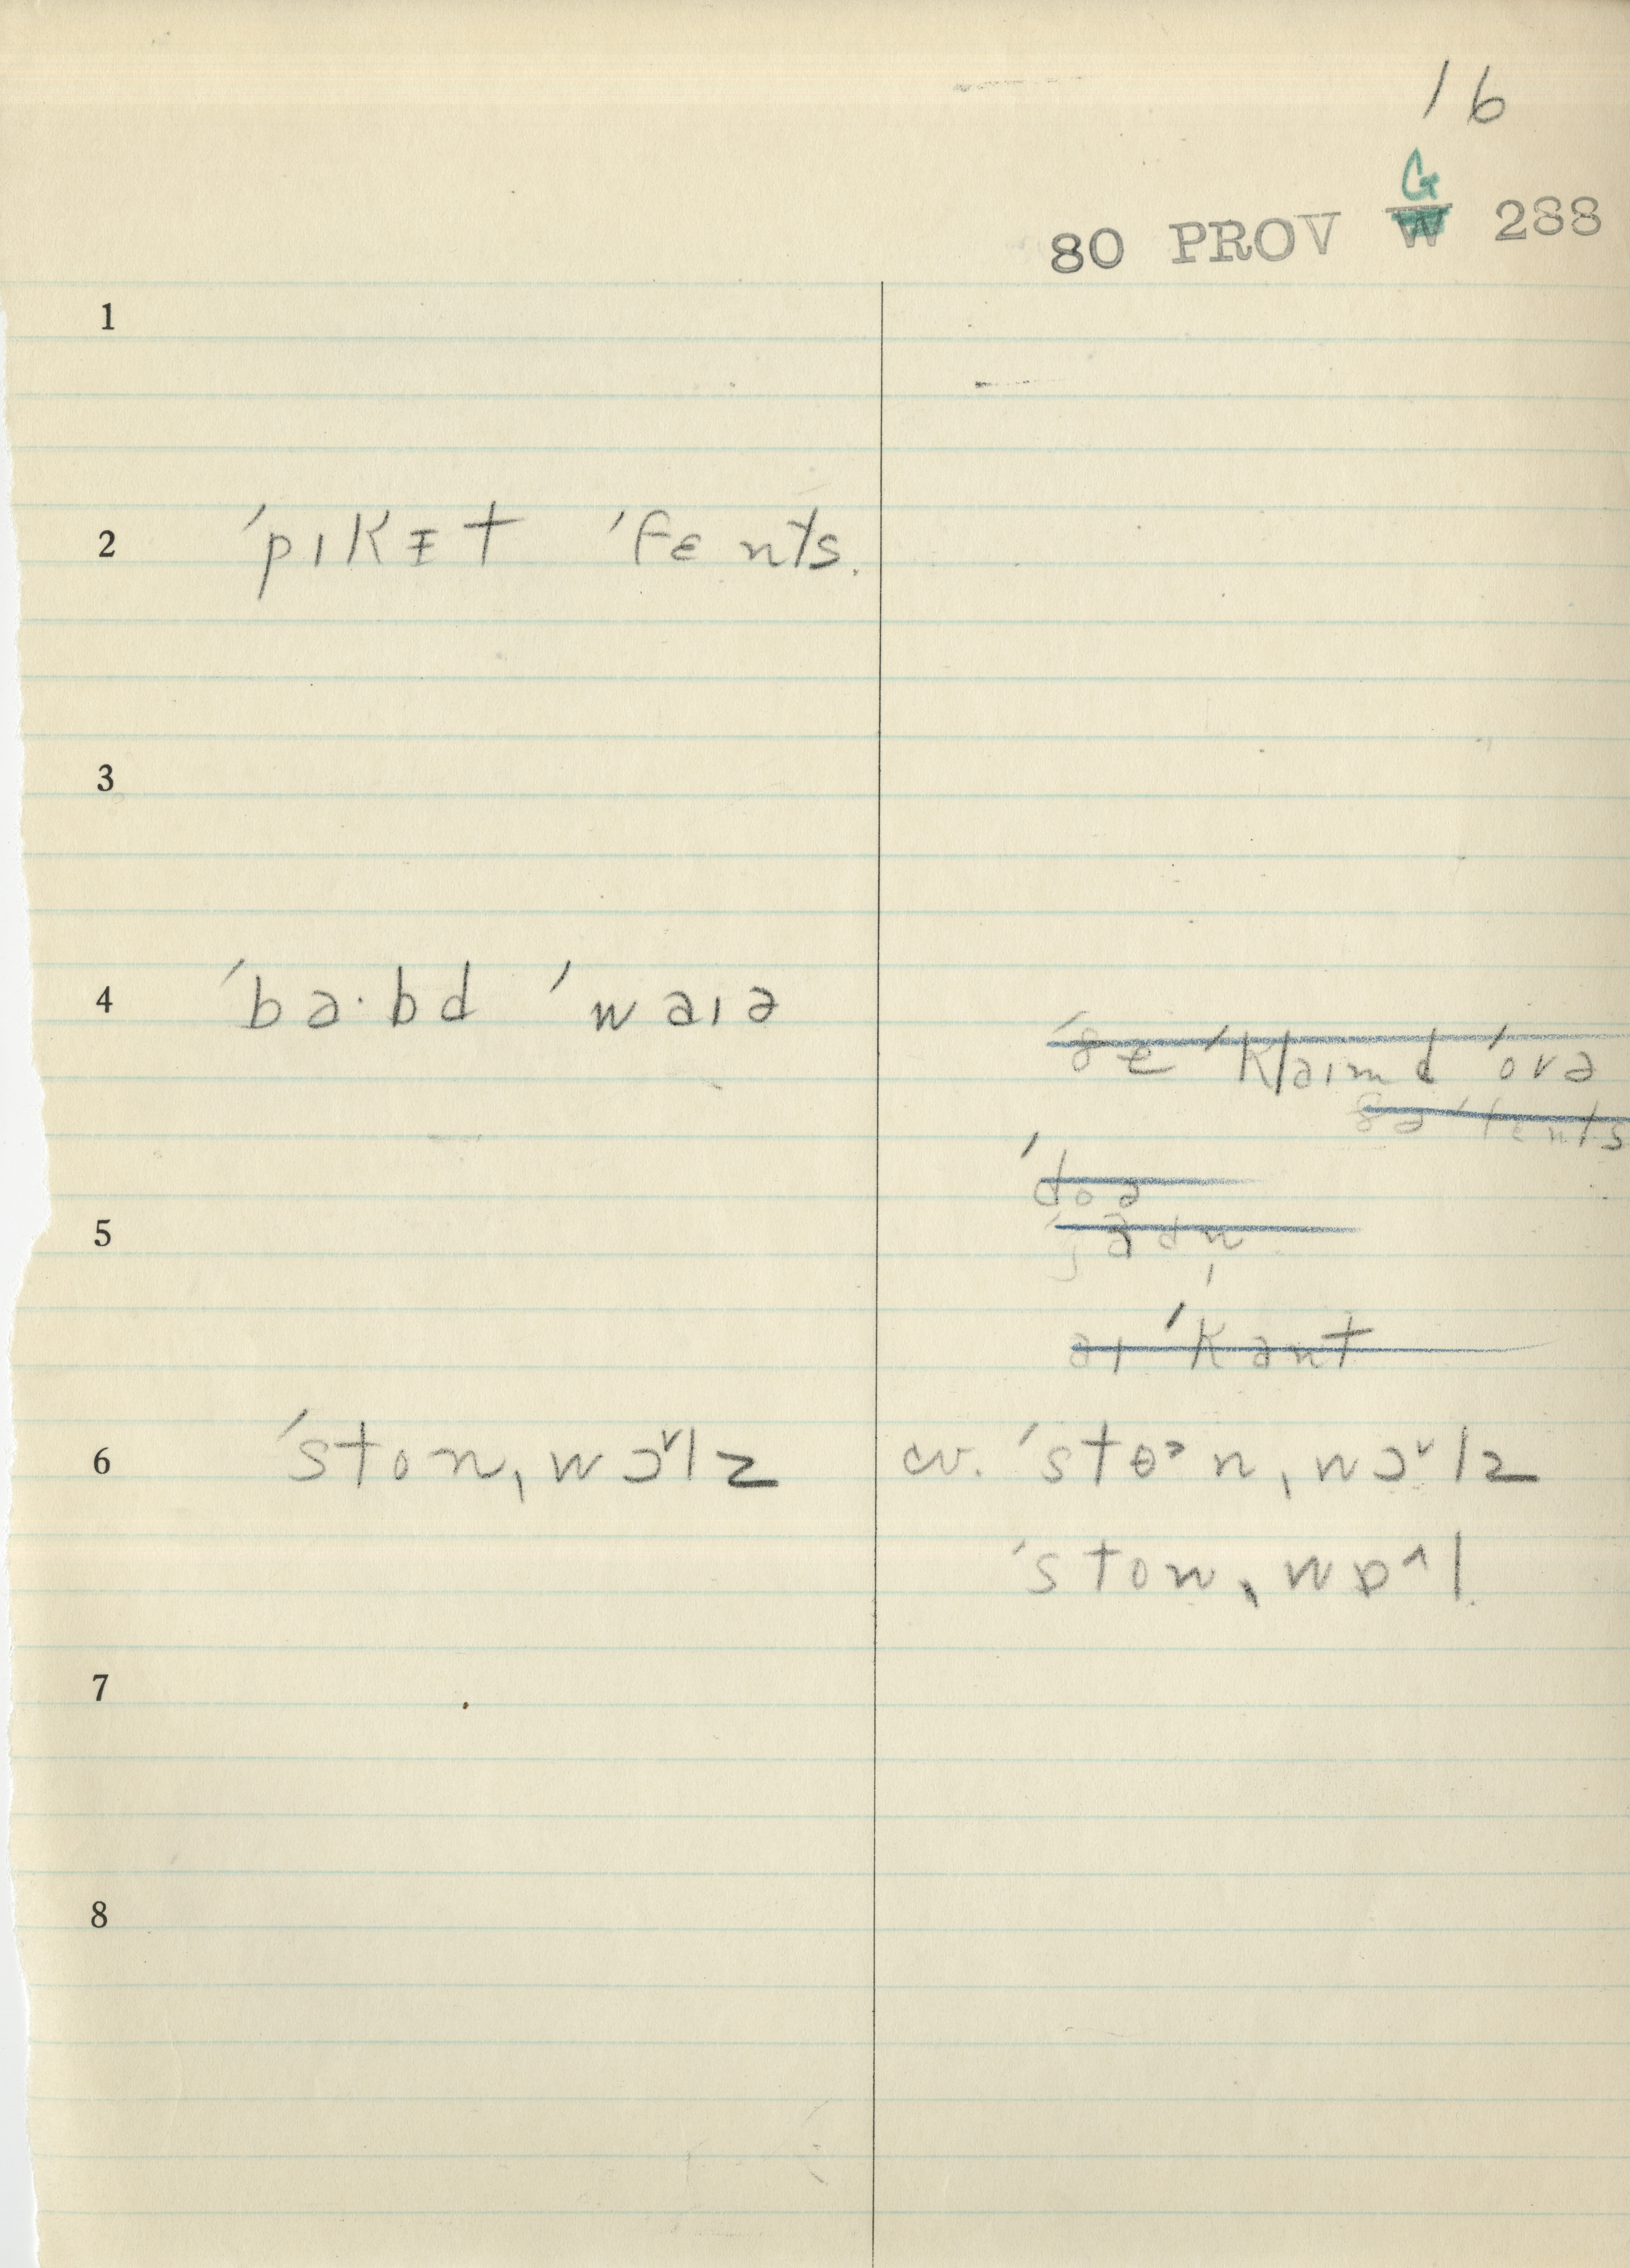 16
G
80 PROV W 288
1
2 ˈpɪkᵻt ˈfɛnts.
3
4 ˈba·bd ˈwaɪə
ˈðe ˈklaɪmd ˈovə
ðə ˈfɛnts
ˈdoə
5
aɪ ˈkant
6 ˈston,wɔ˅lz cv. ˈstɵᵊn,wɔ˅lz
ˈston,wɒ^l
7
8